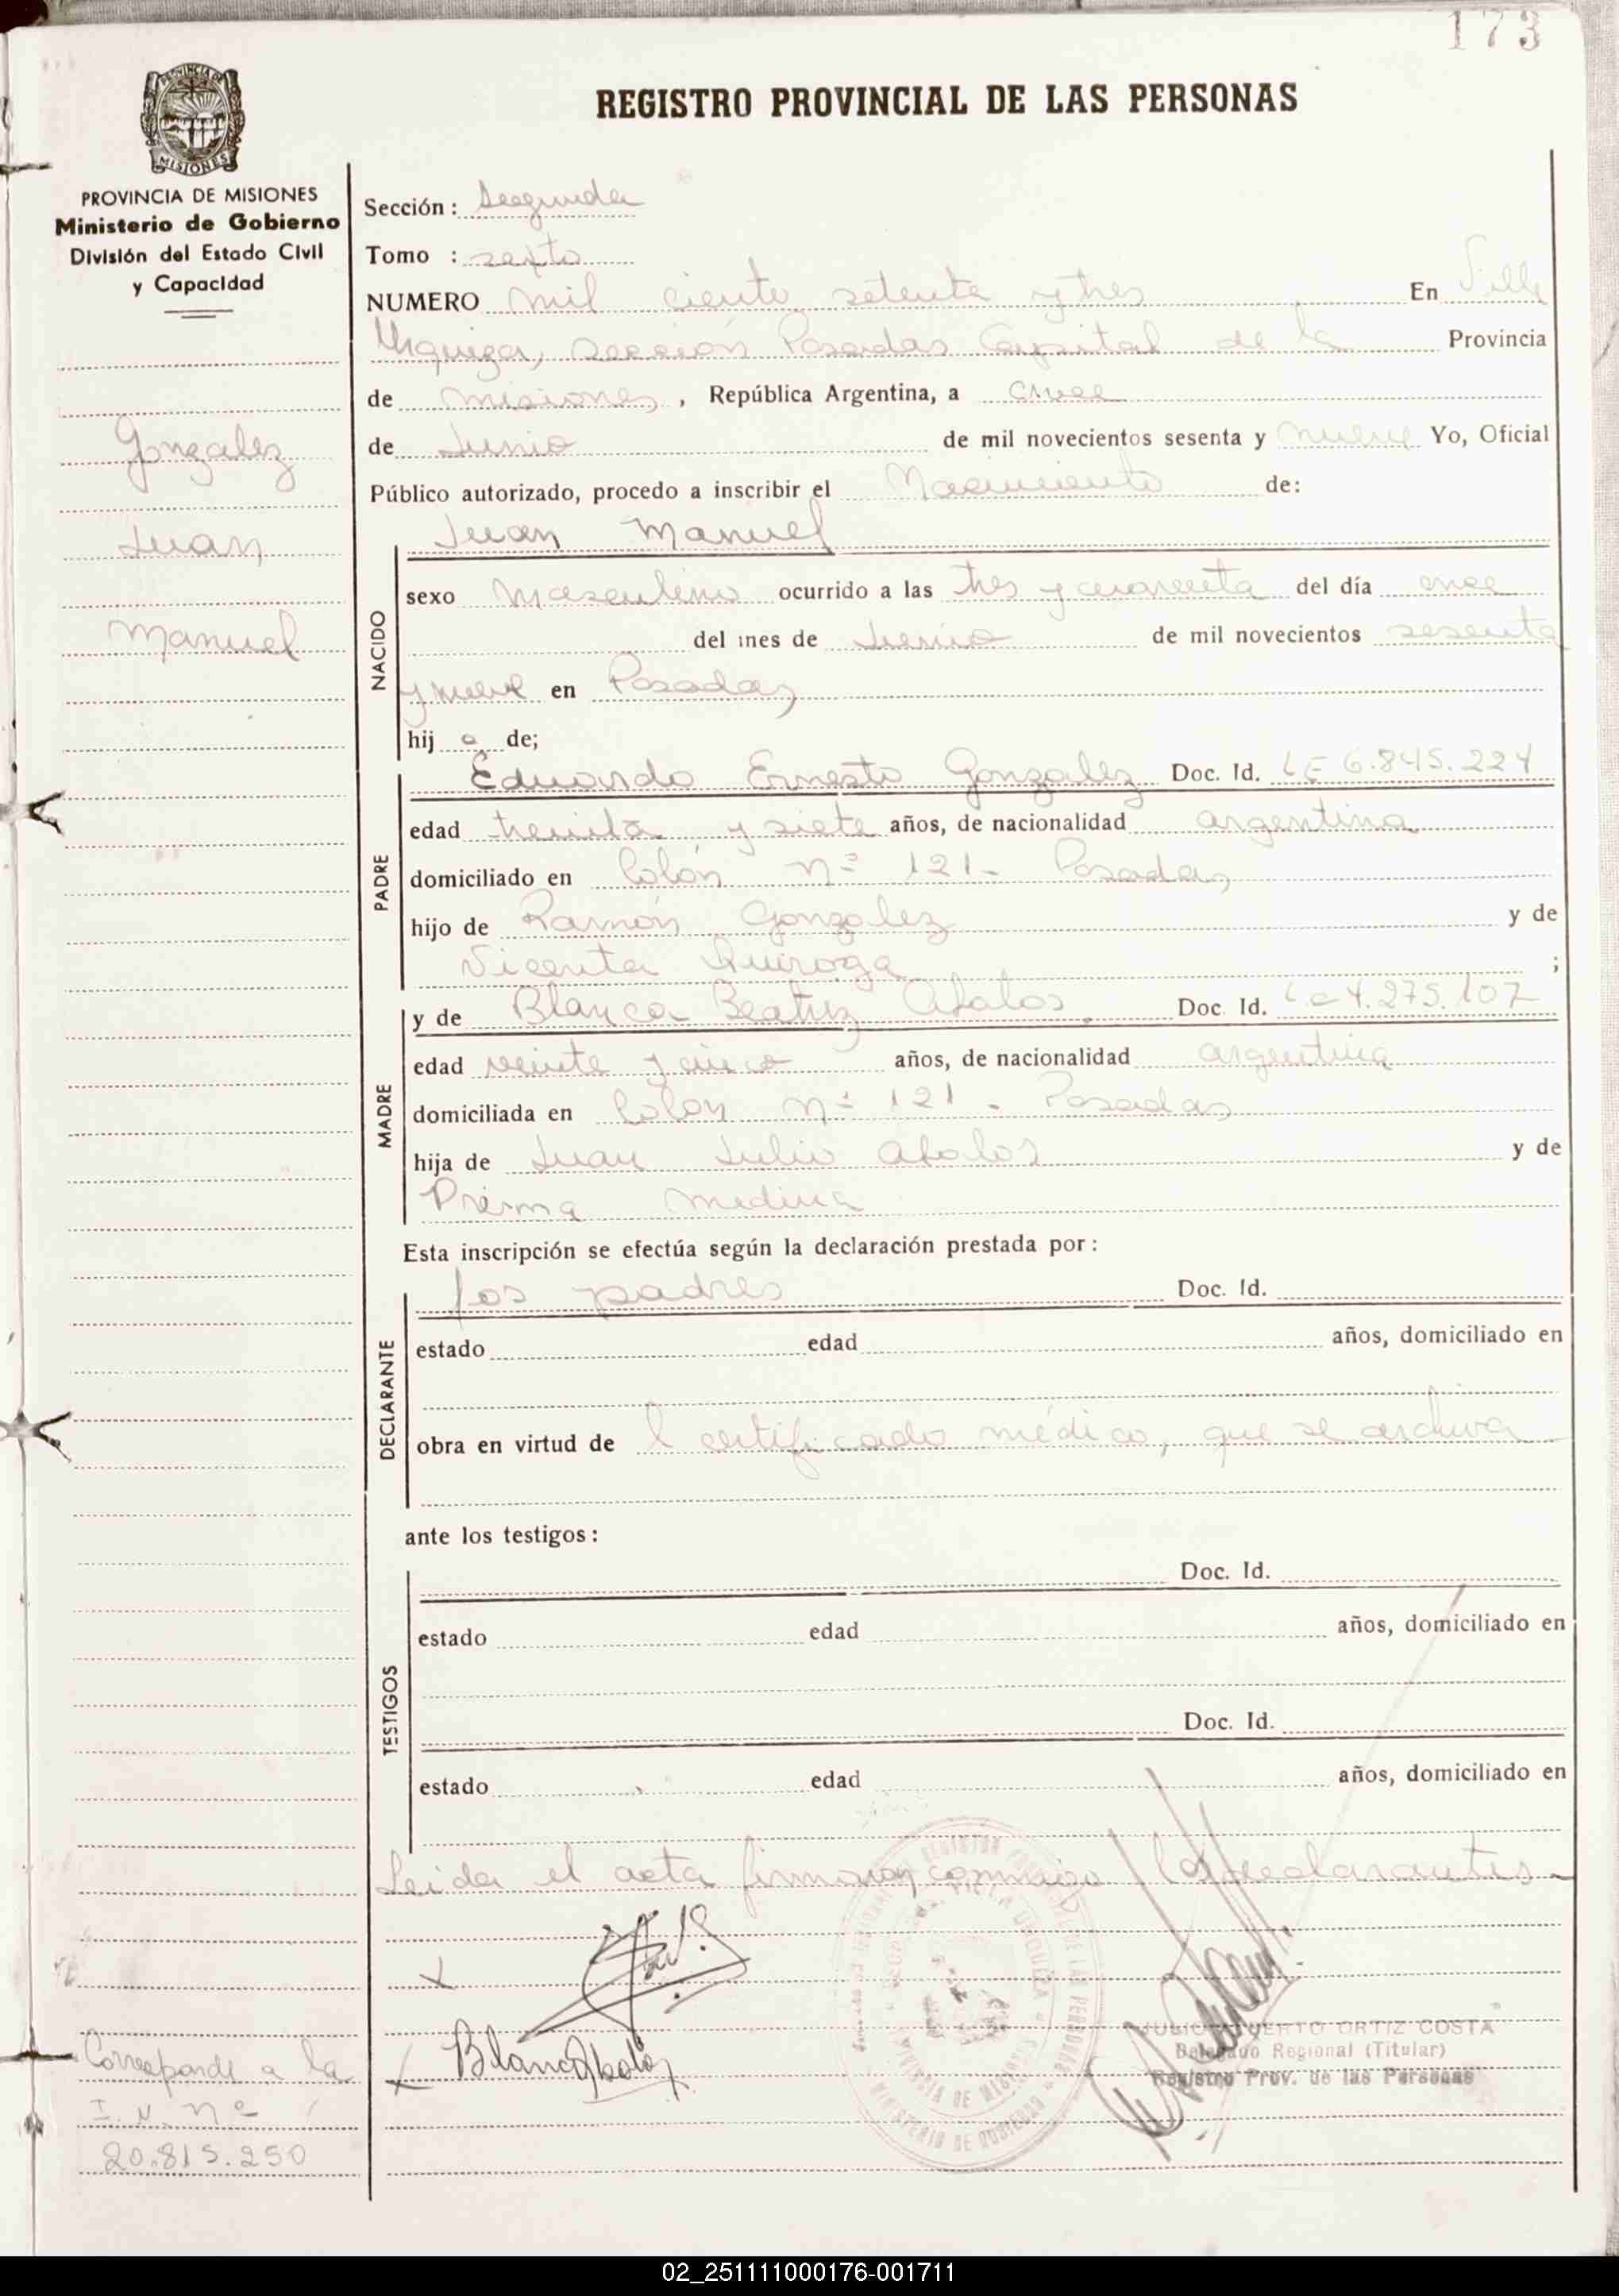 173
REGISTRO PROVINCIAL DE LAS PERSONAS
PROVINCIA DE MISIONES
MISIONES
PROVINCIA DE MISIONES
Ministerio de Gobierno
División del Estado Civil
y Capacidad
Gonzalez
Juan
Manuel
Sección: Segunda
Tomo : sexto
NUMERO mil ciento setenta y tres En Villa
Urquiza, sección Posadas Capital de la Provincia
de misiones, República Argentina, a once
de Junio de mil novecientos sesenta y nueve Yo, Oficial
Público autorizado, procedo a inscribir el Nacimiento de:
NACIDO
Juan Manuel
sexo masculino ocurrido a las tres y cuarenta del día once
del mes de Junio de mil novecientos sesenta
y nueve en Posadas
hij o de;
PADRE
Eduardo Ernesto Gonzalez Doc. Id. LE 6.845.224
edad treinta y siete años, de nacionalidad argentina
domiciliado en Colón nº 121- Posadas
hijo de Ramón Gonzalez y de
Vicenta Quiroga ;
MADRE
y de Blanca Beatriz Abalos Doc. Id. L.C 4.275.107
edad veinte y cinco años, de nacionalidad argentina
domiciliada en Colón nº 121 - Posadas
hija de Juan Julio Abalos y de
Prisma medina
Esta inscripción se efectúa según la declaración prestada por:
DECLARANTE
los padres Doc. Id.
estado edad años, domiciliado en
obra en virtud de l certificado médico, que se archiva
ante los testigos:
TESTIGOS
Doc. Id.
estado edad años, domiciliado en
Doc. Id.
estado edad años, domiciliado en
Leida el acta firmaron conmigo los declarantes.-
Blanca Abalos
ORTIZ COSTA
Delegado Regional (Titular)
Registro Prov. de las Personas
Corresponde a la
I. N. nº
20.815.250
02_251111000176-001711